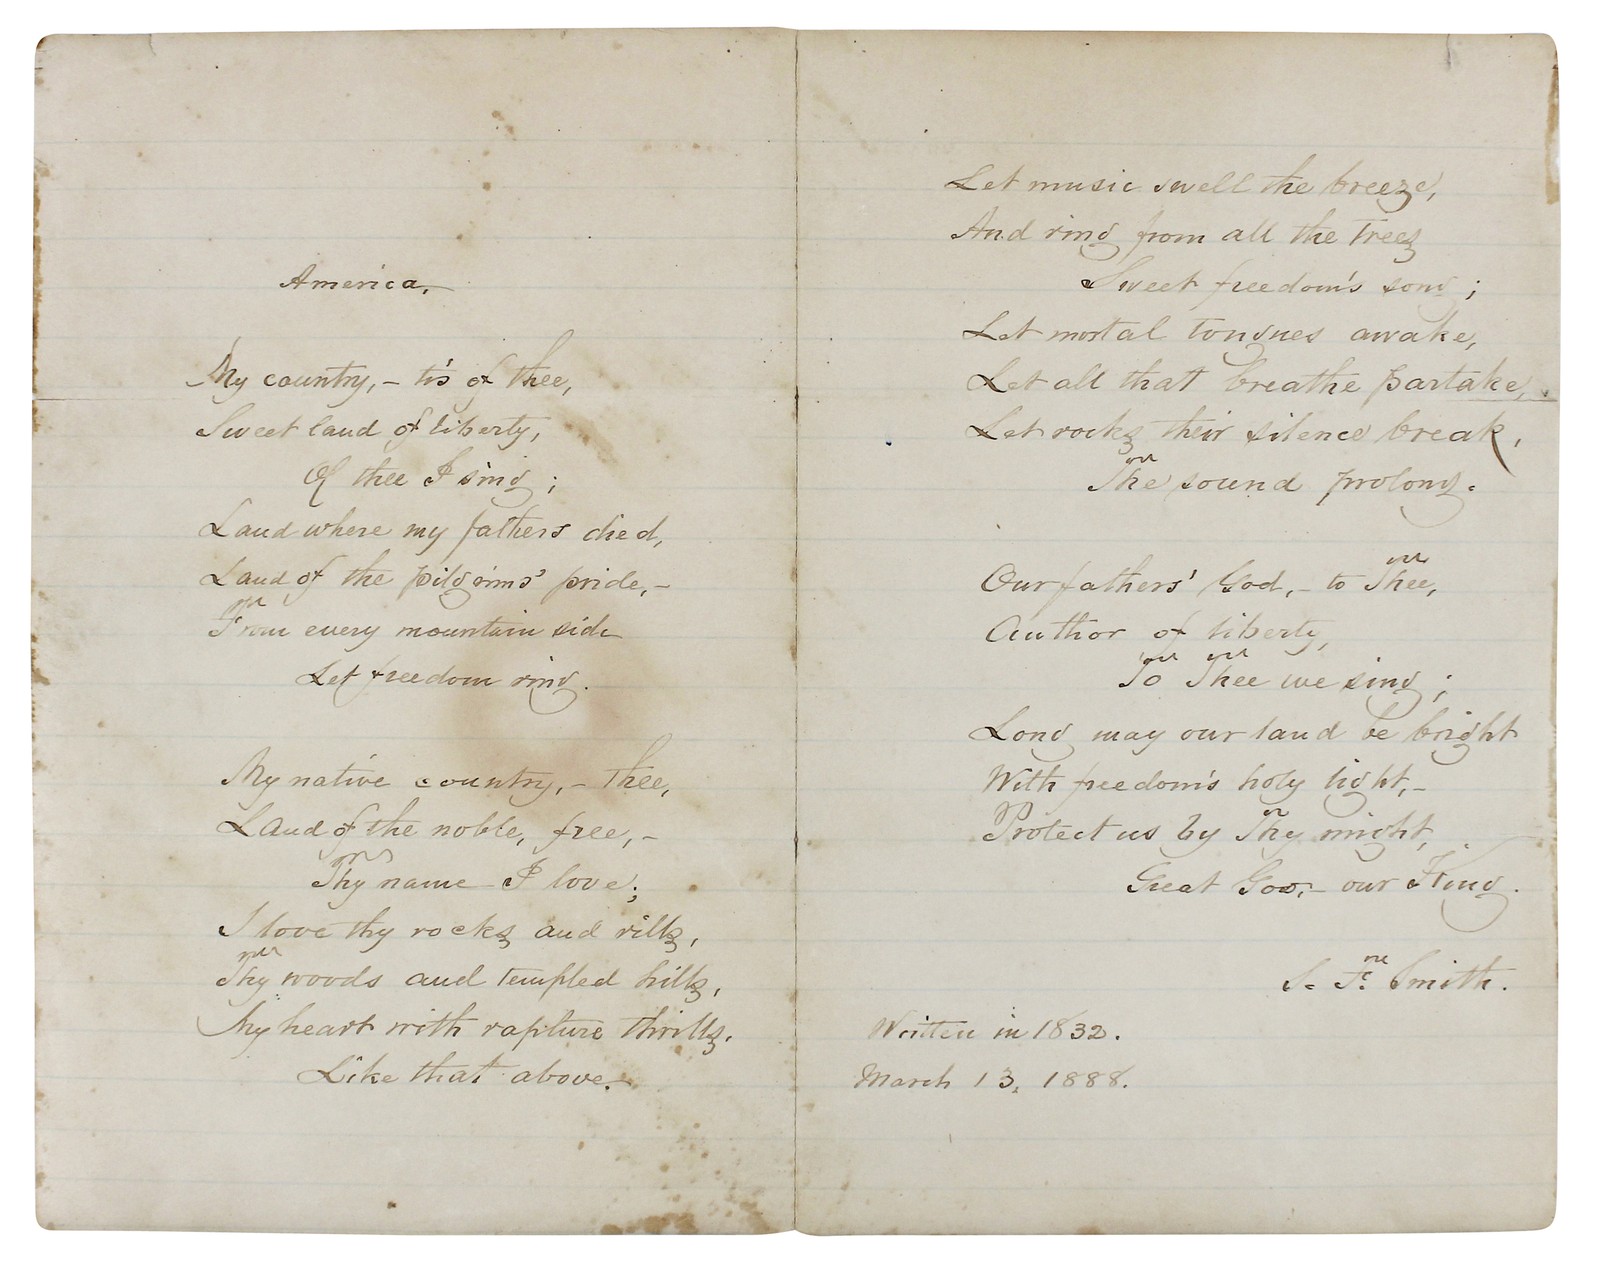 America.
My country, – 'tis of thee,
Sweet land of liberty,
Of thee I sing;
Land where my fathers died,
Land of the pilgrims' pride, –
From every mountain side
Let freedom ring.
My native country, – thee,
Land of the noble, free, –
Thy name I love;
I love thy rocks and rills,
Thy woods and templed hills,
My heart with rapture thrills,
Like that above.
Let music swell the breeze,
And ring from all the trees
Sweet freedom's song;
Let mortal tongues awake,
Let all that breathe partake,
Let rocks their silence break,
The sound prolong.
Our fathers' God, – to Thee,
Author of liberty,
To Thee we sing;
Long may our land be bright
With freedom's holy light, –
Protect us by Thy might,
Great God, – our King.
S. F. Smith.
Written in 1832.
March 13, 1888.